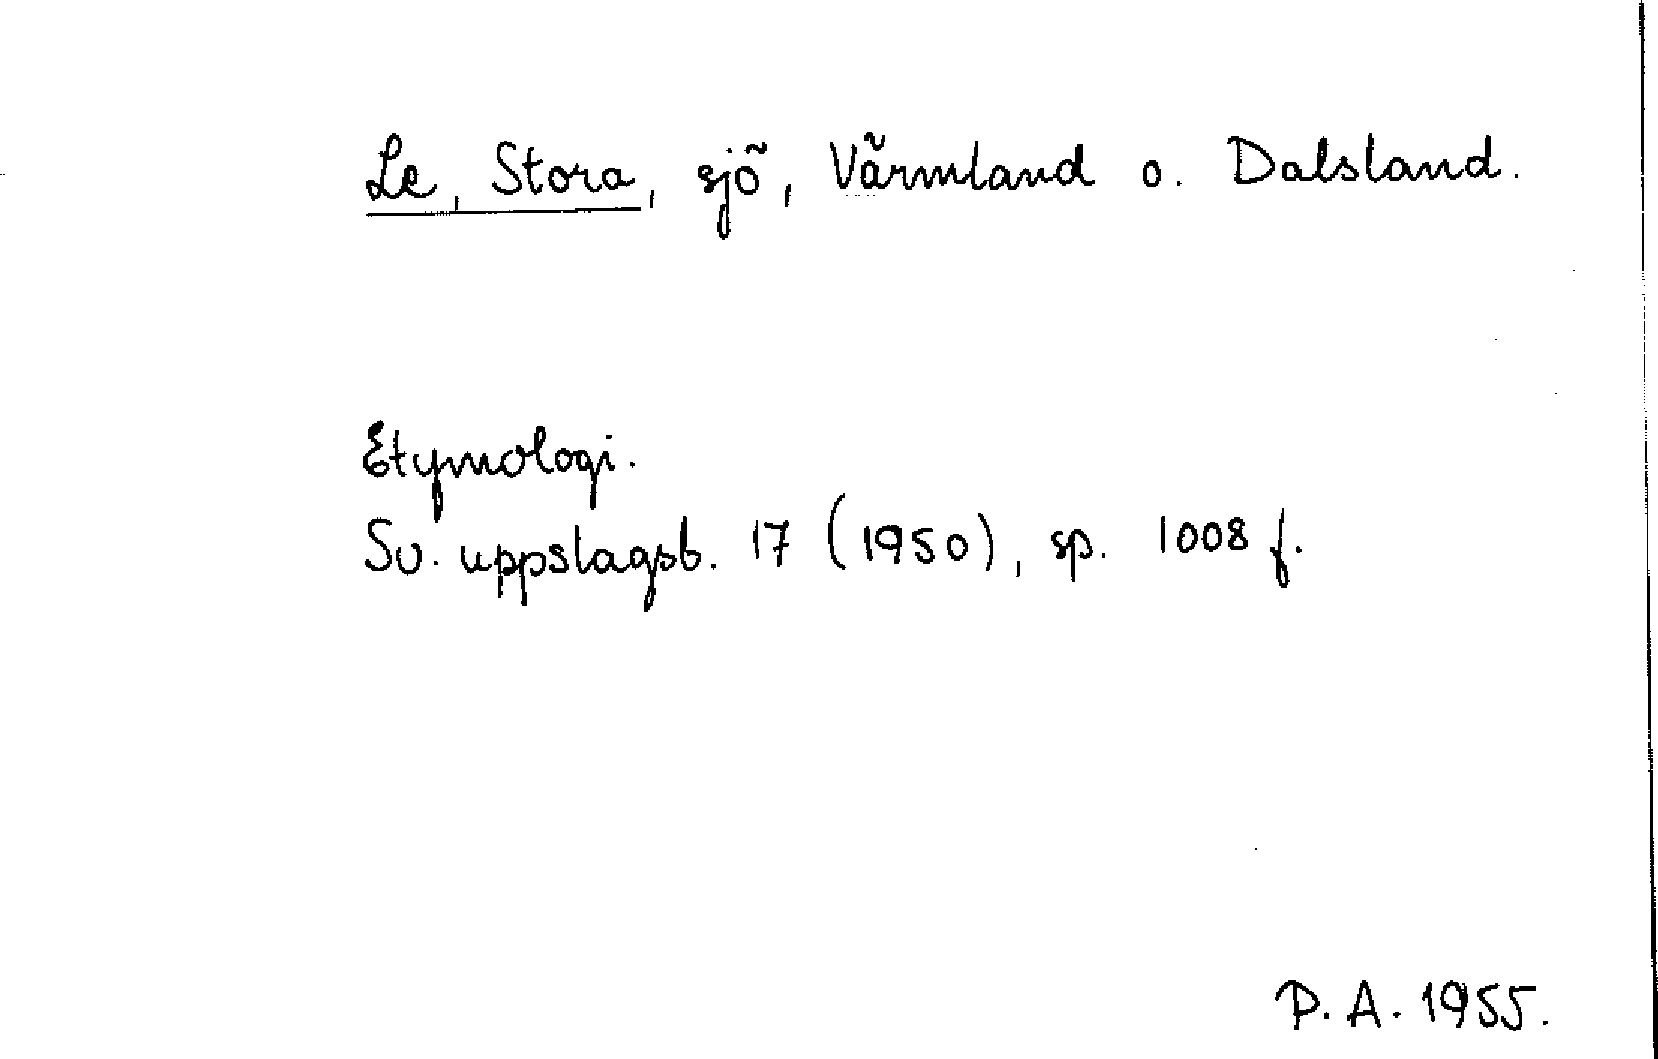 Le, Stora, sjö, Värmland o. Dalsland.
Etymologi.
Sv. uppslagsb. 17 (1950), sp. 1008 f.
P. A. 1955.